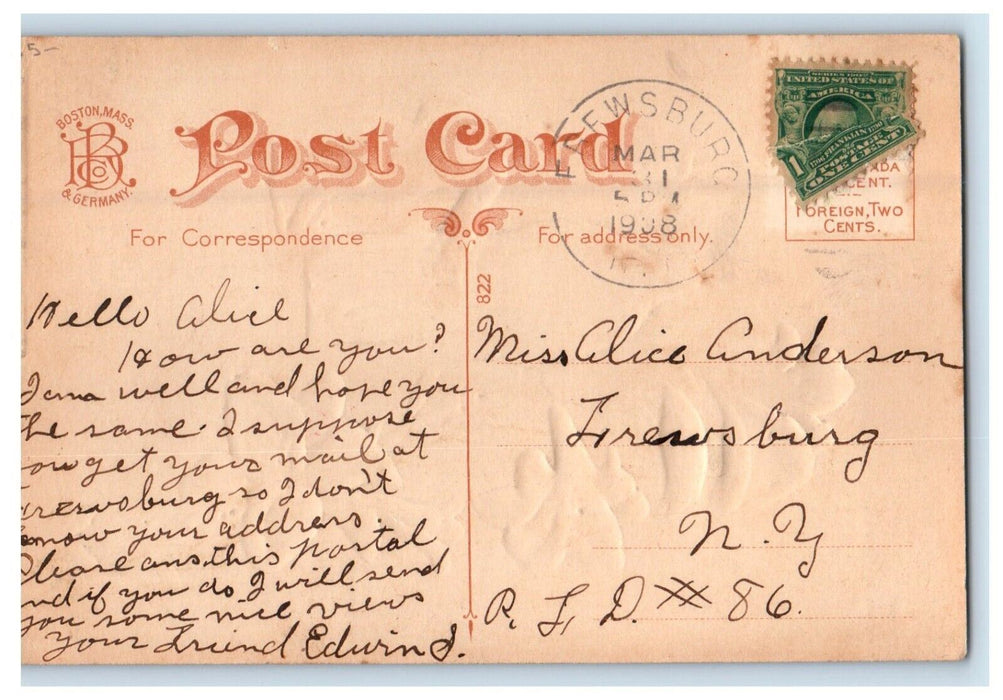 5-
BOSTON, MASS.
& GERMANY.
Post Card
For Correspondence
For address only.
FREWSBURG
MAR
31
5 PM
1908
N.Y.
SERIES 1902
UNITED STATES OF
AMERICA
1706 FRANKLIN 1790
POSTAGE
1 ONE CENT
CENT.
FOREIGN, TWO
CENTS.
822
Hello Alice
How are you?
I am well and hope you
the same. I suppose
you get your mail at
Frewsburg so I don't
know your address.
Please ans this postal
and if you do I will send
you some nice views
Your Friend Edwin J.
Miss Alice Anderson
Frewsburg
N.Y
R. F. D. # 86.